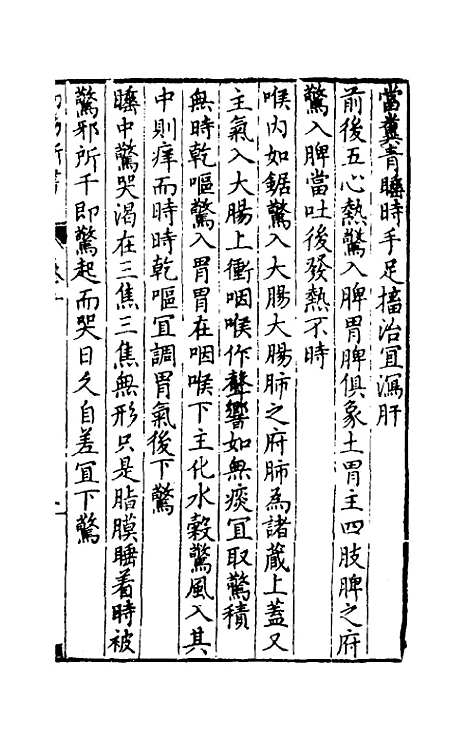 當糞青睡時手足搐治宜瀉肝
前後五心熱驚入脾胃脾俱象土胃主四肢脾之府
驚入脾當吐後發熱不時
喉內如鋸驚入大腸大腸肺之府肺為諸藏上蓋又
主氣入大腸上衝咽喉作聲響如無痰宜取驚積
無時乾嘔驚入胃胃在咽喉下主化水穀驚風入其
中則痒而時時乾嘔宜調胃氣後下驚
睡中驚哭渴在三焦三焦無形只是脂膜睡着時被
驚邪所干即驚起而哭日久自差宜下驚
幼幼新書